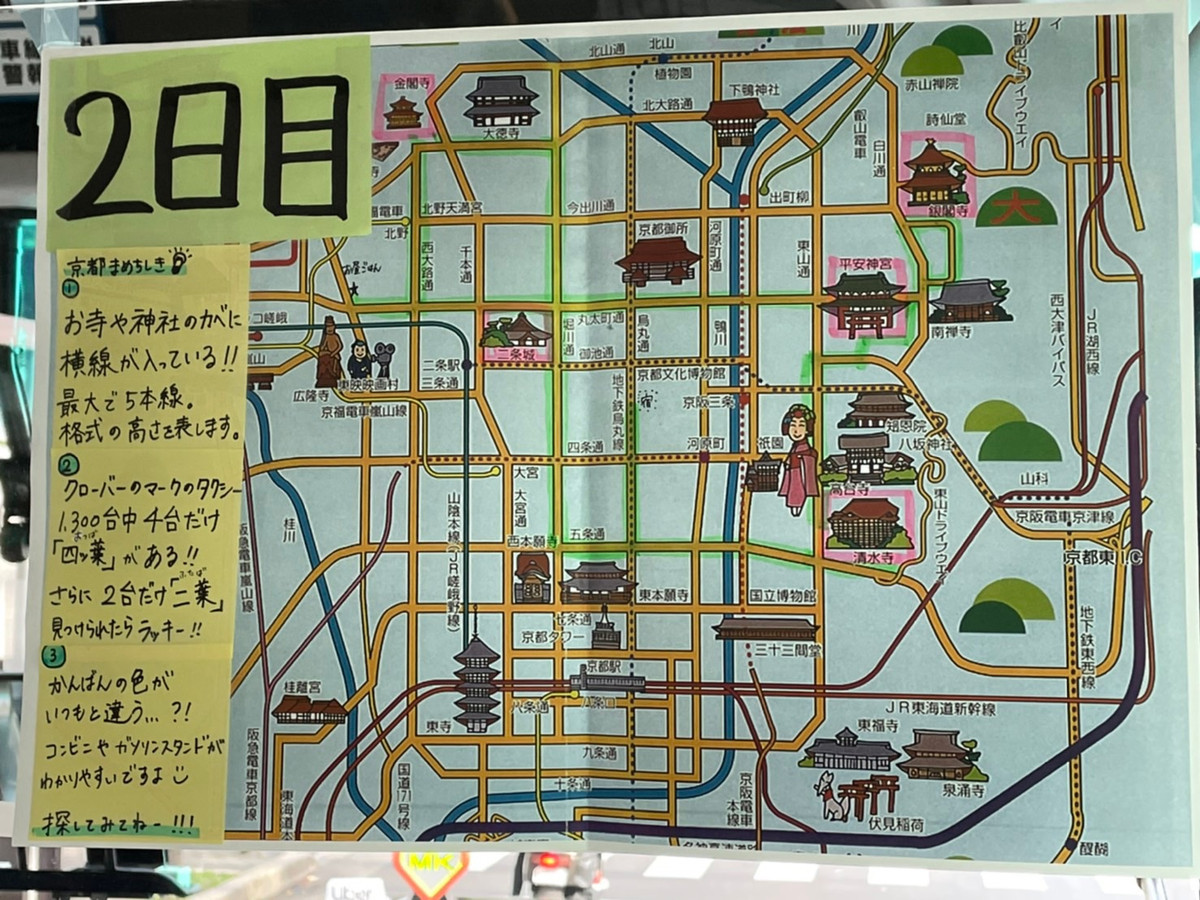 2日目
京都まめちしき
①
お寺や神社のカベに
横線が入っている!!
最大で5本線。
格式の高さを表します。
②
クローバーのマークのタクシー
1,300台中4台だけ
「四ッ葉」がある!!
よつば
さらに2台だけ「二葉」
ふたば
見つけられたらラッキー!!
③
かんばんの色が
いつもと違う...?!
コンビニやガソリンスタンドが
わかりやすいですよ
探してみてねー!!!
北山通
北山
植物園
金閣寺
大徳寺
北大路通
下鴨神社
叡山電車
白川通
赤山禅院
比叡山ドライブウエイ
詩仙堂
銀閣寺
大
北野天満宮
北野
今出川通
出町柳
京都御所
河原町通
東山通
西大路通
千本通
お昼ごはん
平安神宮
南禅寺
西大津バイパス
JR湖西線
二条城
堀川通
丸太町通
御池通
烏丸通
鴨川
二条駅
三条通
広隆寺
東映映画村
京福電車嵐山線
京都文化博物館
地下鉄烏丸線
宿
京阪三条
知恩院
八坂神社
四条通
河原町
祇園
高台寺
清水寺
東山ドライブウエイ
山科
京阪電車京津線
京都東I.C
大宮
大宮通
山陰本線(JR嵯峨野線)
桂川
阪急電車嵐山線
五条通
西本願寺
東本願寺
国立博物館
七条通
京都タワー
三十三間堂
京都駅
八条通
八条口
東寺
桂離宮
JR東海道新幹線
地下鉄東西線
東福寺
泉涌寺
伏見稲荷
九条通
十条通
国道171号線
阪急電車京都線
京阪電車本線
醍醐
MK
Uber